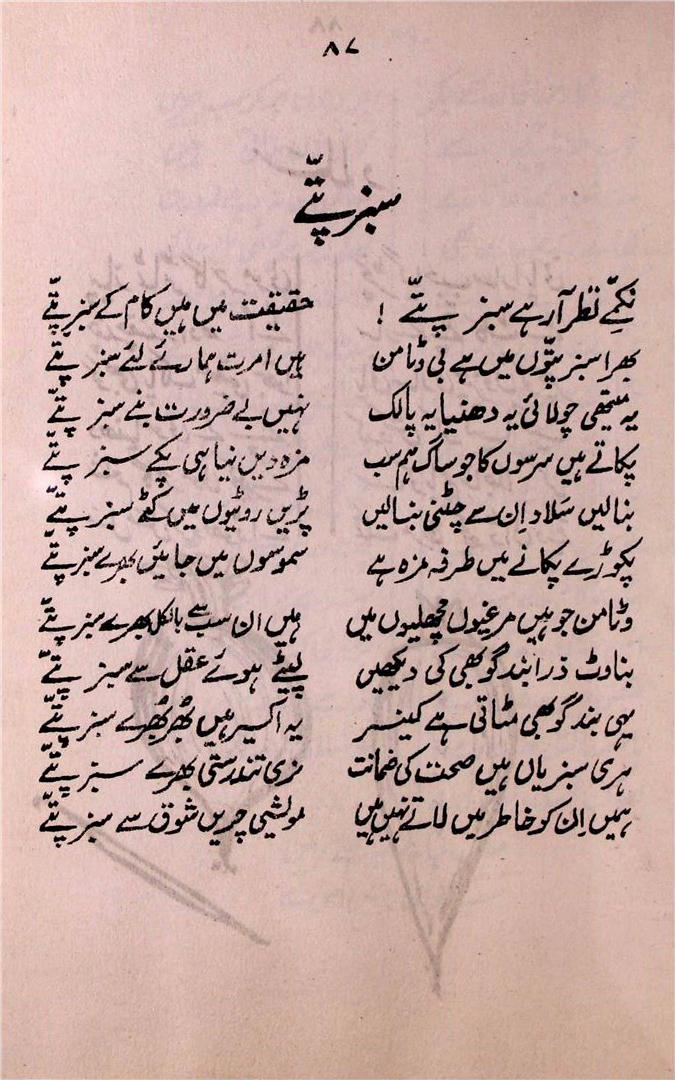 ۸۷
سبز پتّے
نکمّے نظر آرہے سبز پتّے ! حقیقت میں ہیں کام کے سبز پتّے
بھرا سبز پتّوں میں ہے بی وٹامن ہیں امرت ہمارے لئے سبز پتّے
یہ میتھی چولائی یہ دھنیا یہ پالک نہیں بے ضرورت بنے سبز پتّے
پکاتے ہیں سرسوں کا جو ساگ ہم سب مزہ دیں نیا ہی پکے سبز پتّے
بنالیں سَلاد اِن سے چٹنی بنالیں پڑیں روٹیوں میں کٹے سبز پتّے
پکوڑے پکانے میں طرفہ مزہ ہے سموسوں میں جائیں بھرے سبز پتّے
وٹامن جو ہیں مرغیوں مچھلیوں میں ہیں ان سب سے بالکل بھرے سبز پتّے
بناوٹ ذرا بند گوبھی کی دیکھیں لپٹے ہوئے عقل سے سبز پتّے
یہی بند گوبھی مٹاتی ہے کینسر یہ اکسیر ہیں بھُربھُرے سبز پتّے
ہری سبزیاں ہیں صحت کی ضمانت نری تندرستی بھرے سبز پتّے
ہمیں اِن کو خاطر میں لاتے نہیں ہیں مولشی چریں شوق سے سبز پتّے